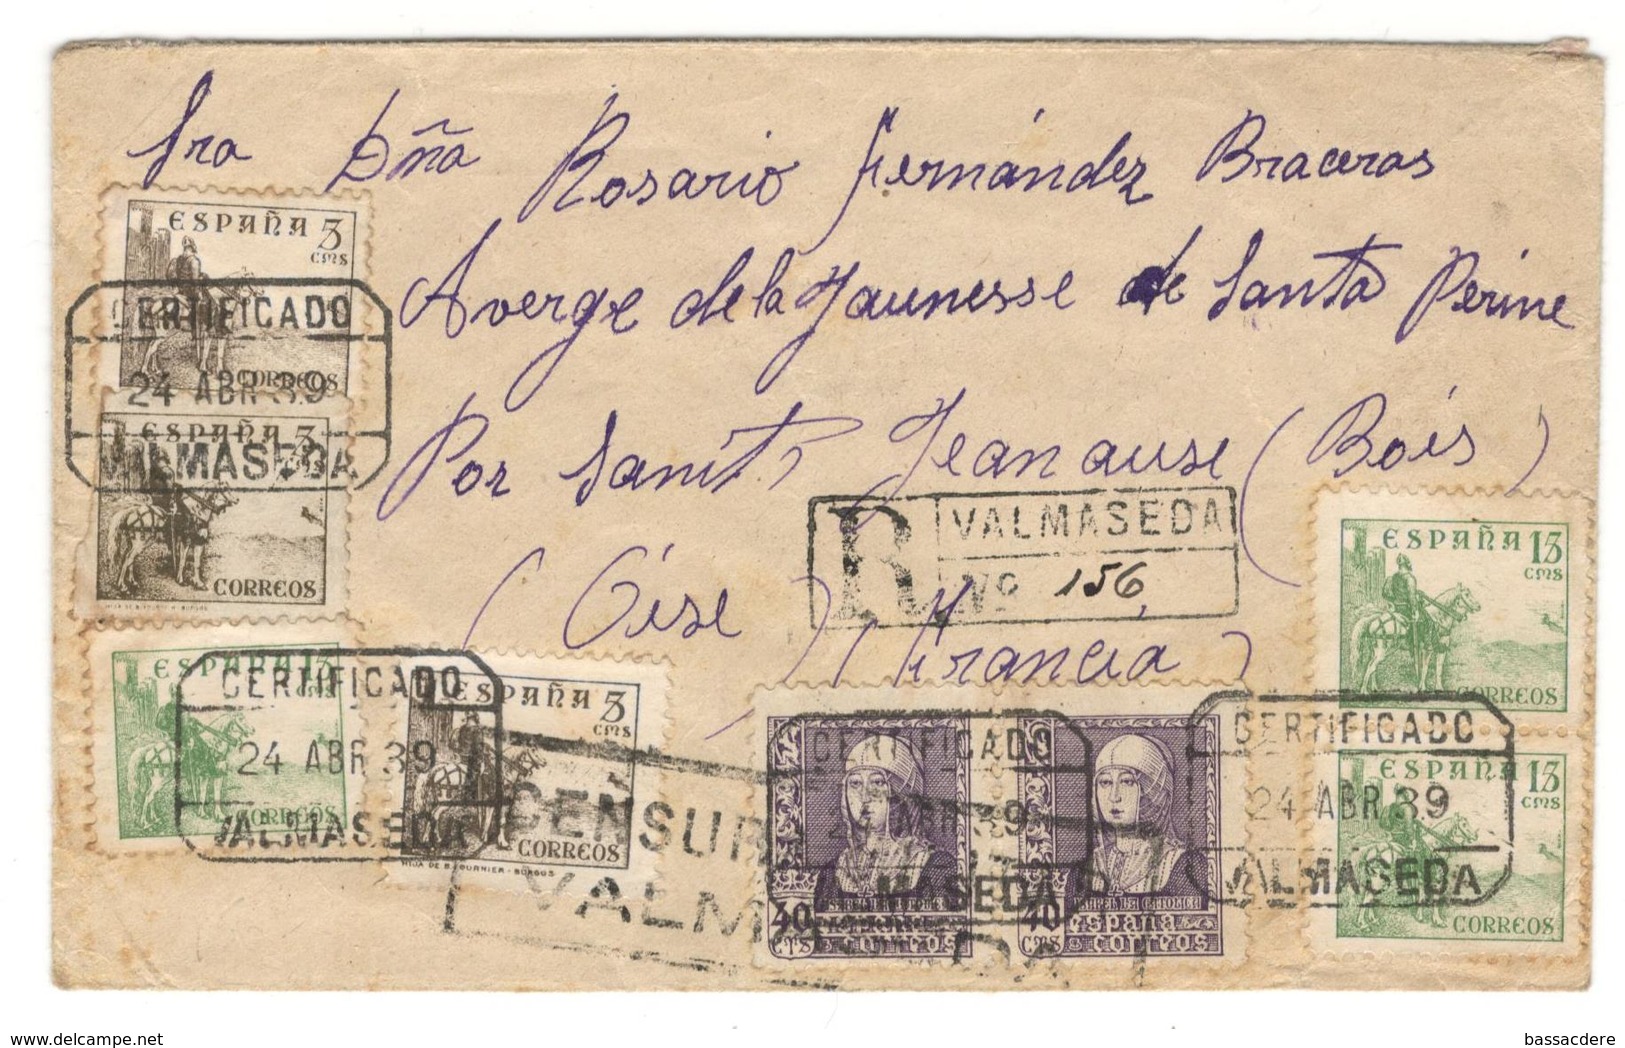 Sra Dña Rosario Fernández Braceras
Averge de la Jaunesse de Santa Perine
Por Sanits Jeanause (Bois)
(Oise) (Francia)
R VALMASEDA
Nº 156
ESPAÑA 5 CMS
CORREOS
CERTIFICADO
24 ABR 39
VALMASEDA
ESPAÑA
CORREOS
ESPAÑA 15 CMS
CORREOS
CERTIFICADO
24 ABR 39
VALMASEDA
ESPAÑA 5 CMS
CORREOS
HIJA DE B. FOURNIER - BURGOS
CENSURA
VALM
40 CTS
CORREOS
CERTIFICADO
24 ABR 39
MASEDA
40 CTS
ISABEL LA CATOLICA
ESPAÑA
CORREOS
ESPAÑA 15 CMS
CORREOS
ESPAÑA 15 CMS
CORREOS
CERTIFICADO
24 ABR 39
VALMASEDA
www.delcampe.net
bassacdere